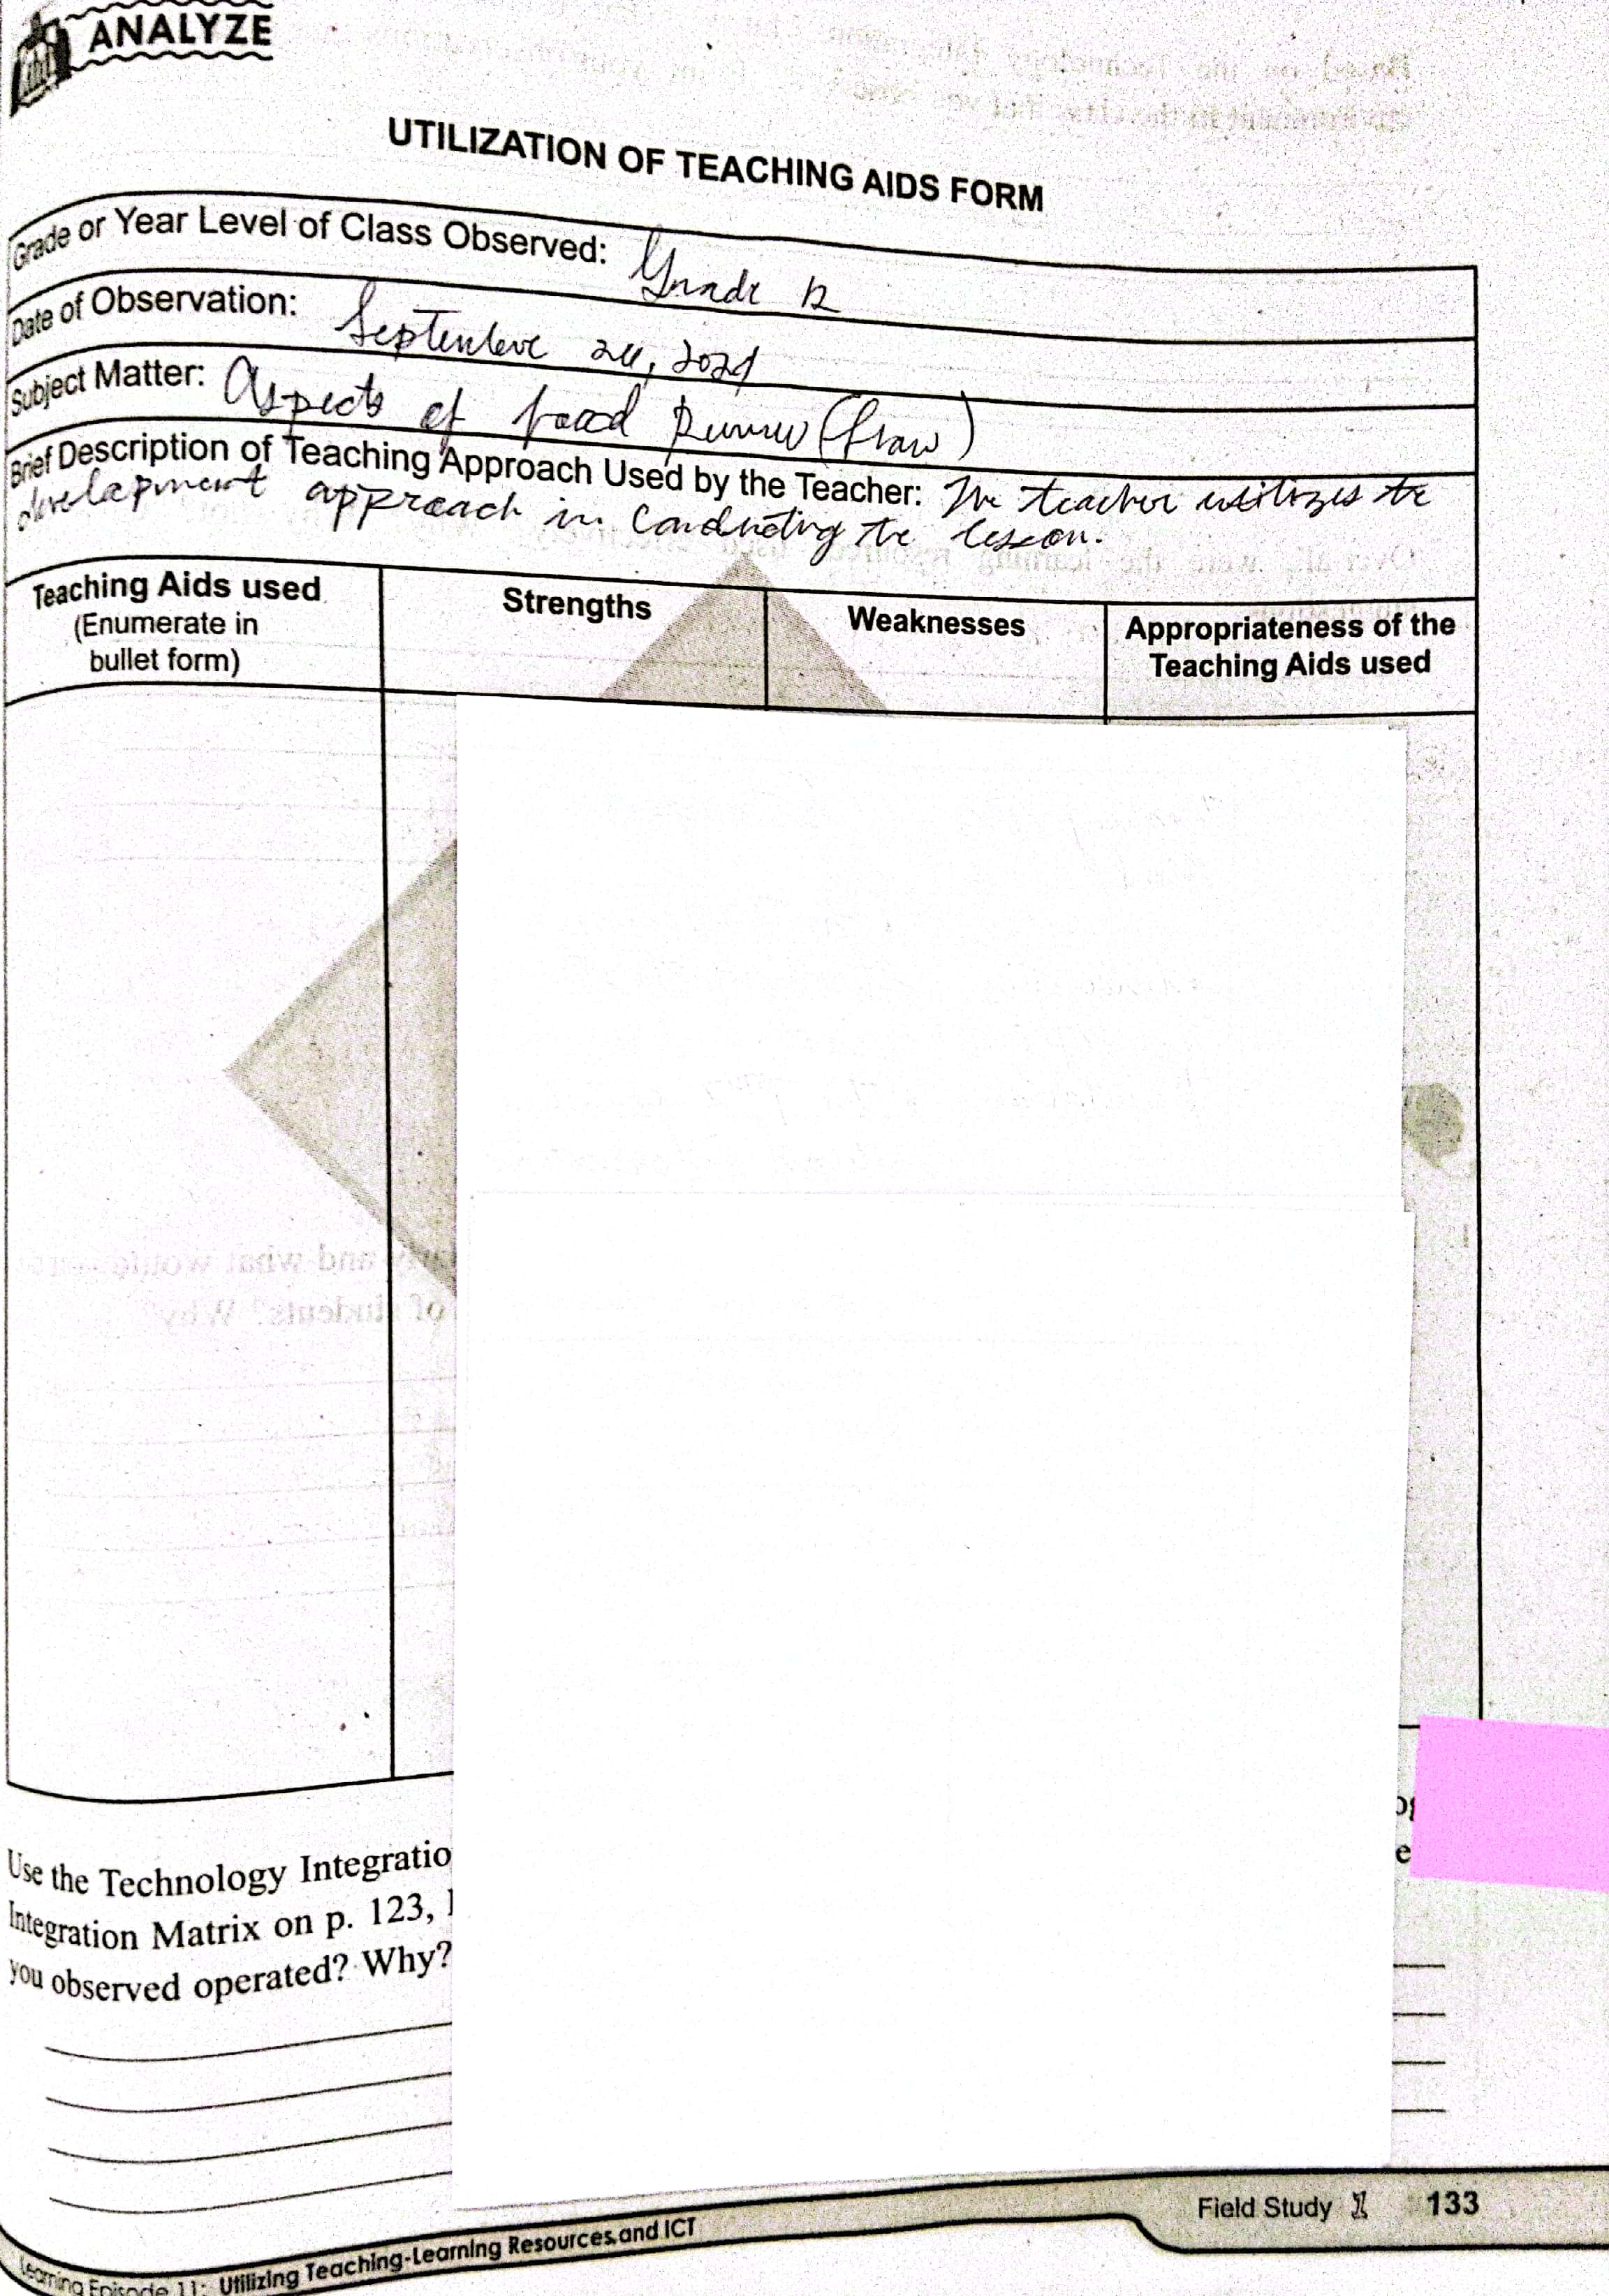 ANALYZE
UTILIZATION OF TEACHING AIDS FORM
Grade or Year Level of Class Observed: Grade 12
Date of Observation: September 24, 2024
Subject Matter: Aspects of Food
Brief Description of Teaching Approach Used by the Teacher: The teacher utilizes the
development approach in conducting the lesson.
Teaching Aids used
(Enumerate in
bullet form)
Strengths
Weaknesses
Appropriateness of the
Teaching Aids used
Use the Technology Integratio
Integration Matrix on p. 123,
you observed operated? Why?
Field Study 1 133
Learning Episode 11: Utilizing Teaching-Learning Resources and ICT